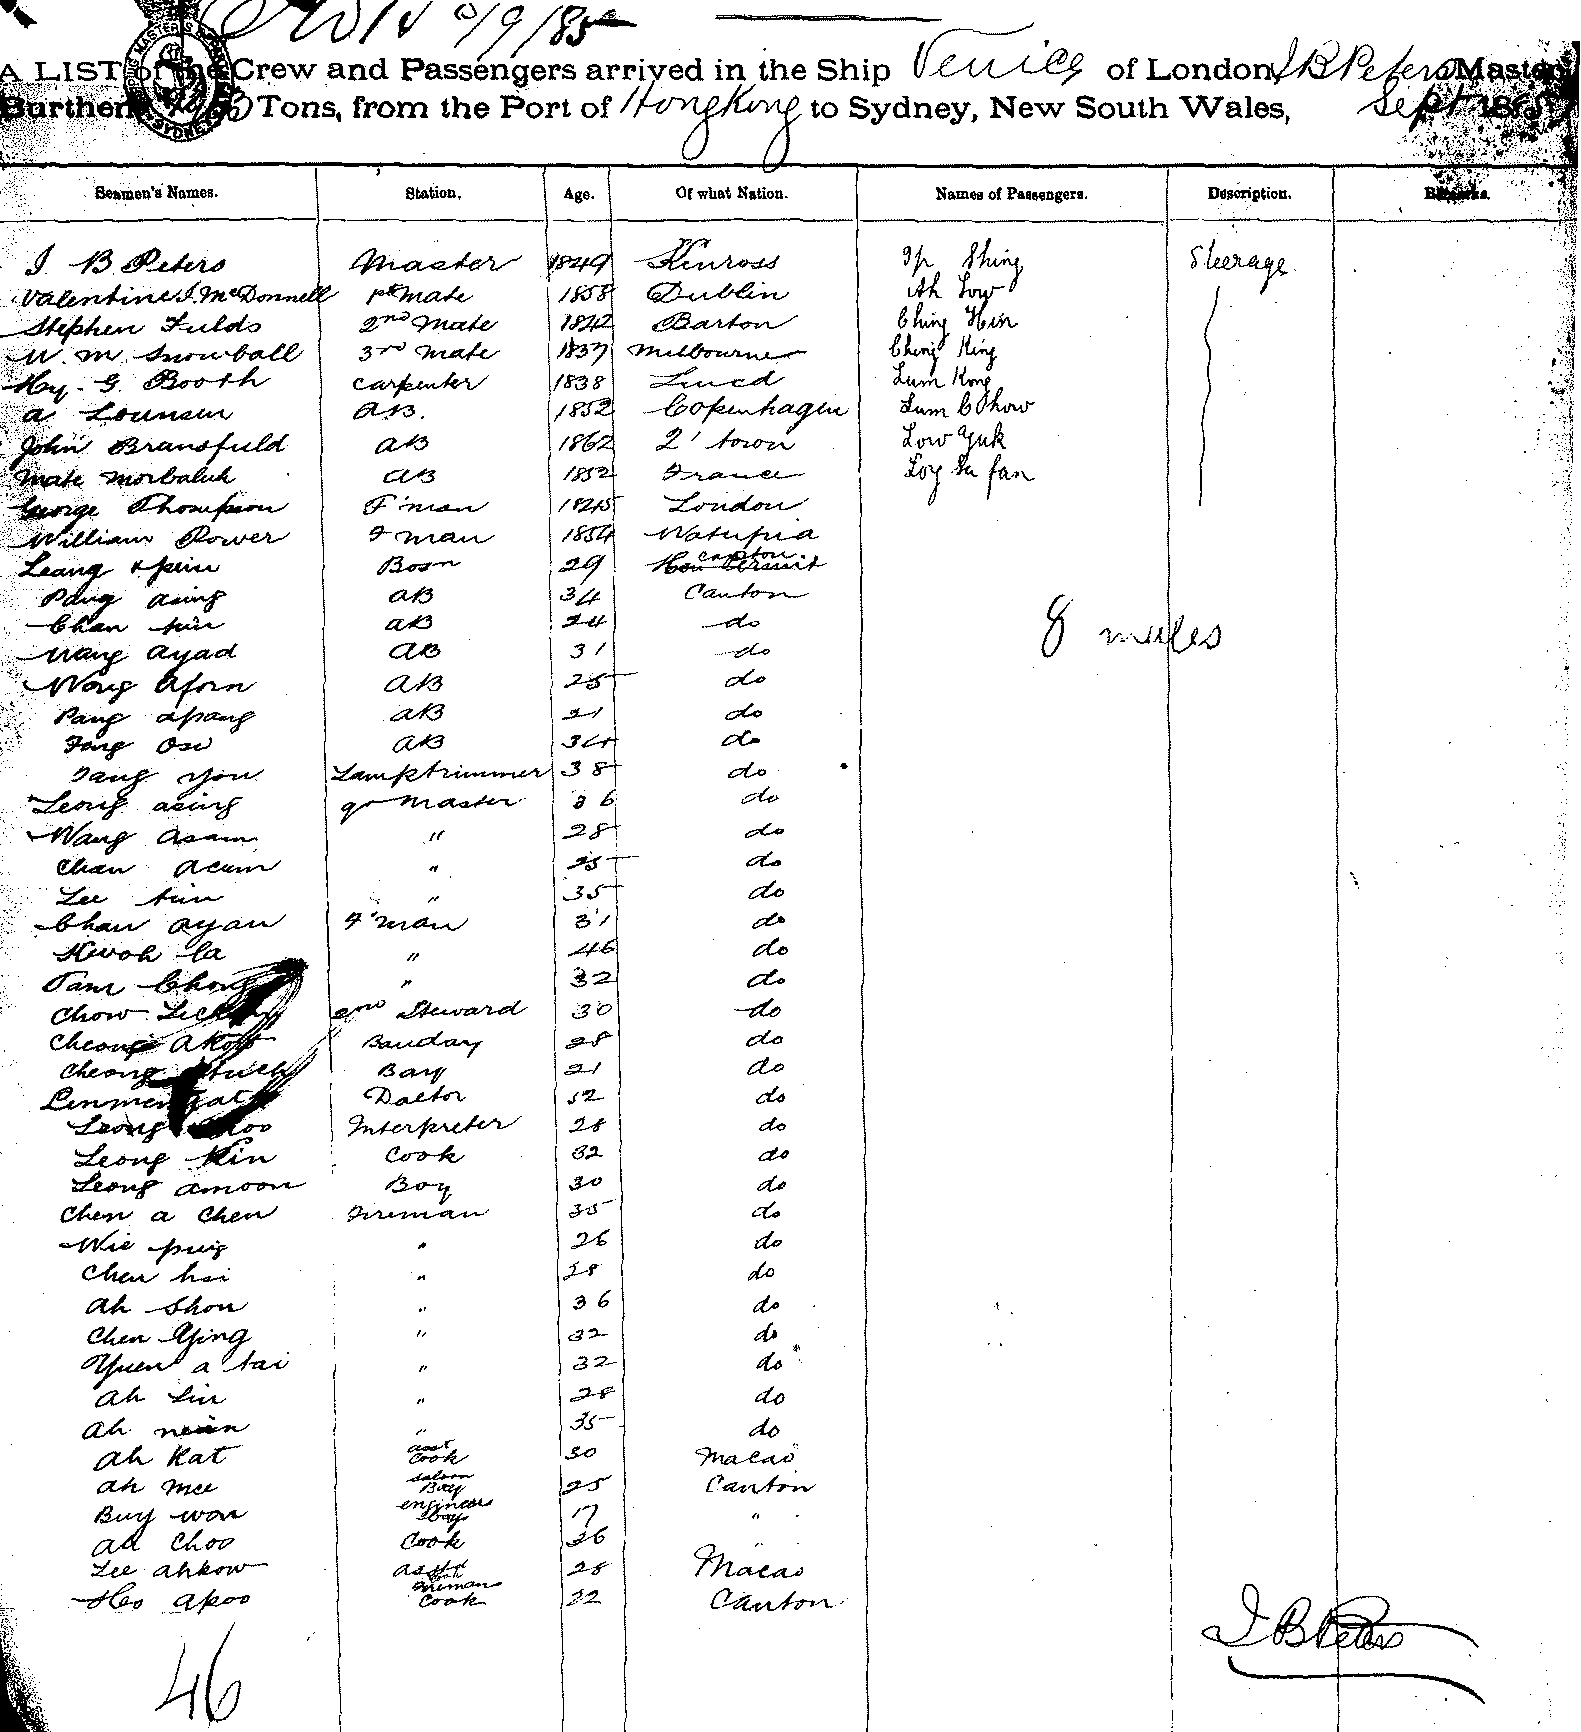 0/9/85
A LIST of the Crew and Passengers arrived in the Ship Venice of London, J B Peters Master
Burthen Tons, from the Port of Hongkong to Sydney, New South Wales, Sept 1885
Seamen's Names. Station. Age. Of what Nation. Names of Passengers. Description. Remarks.
J B Peters Master 1849 Kinross Ip Shing Steerage
Valentine J. McDonnell 1st Mate 1858 Dublin Ah Low
Stephen Fulds 2nd Mate 1842 Barton Ching Hin
W. M. Snowball 3rd Mate 1837 Melbourne Cheng King
Hy. G. Booth Carpenter 1838 Lum Kong
A Lounsen AB. 1852 Copenhagen Lum Chow
John Bransfuld AB 1862 2' town Low Yuk
Mate Morbaluk AB 1852 France Loy fan
George Thompson F'man 1845 London
William Power F man 1854
Leang Bosn 29 Canton
Pang asing AB 34 Canton
Chan AB 24 do
Wang Ayad AB 31 do
Wong AB 25 do
Pang apang AB 21 do
Fong AB 34 do
Tang You Lamptrimmer 38 do
Leong asing qr Master 36 do
Wang Asam " 28 do
Chan Acum " 25 do
Lee " 35 do
Chan ayan F'man 31 do
Kwok la " 46 do
Tam Chong " 32 do
Chow 2nd Steward 30 do
Cheong 28 do
Cheong 21 do
52 do
Leong Interpreter 28 do
Leong Kin Cook 32 do
Leong amoon Boy 30 do
Chen a Chen Fireman 35 do
Wie " 26 do
Chen hoi " 28 do
Ah Shou " 36 do
Chen Ying " 32 do
Yuen a tai " 32 do
Ah " 28 do
Ah " 35 do
Ah Kat asst Cook 30 Macao
Ah Mee saloon Boy 25 Canton
Buy won engineers Boy 17 "
Ah Choo Cook 26 "
Lee ahkow 28 Macao
Ho apoo Fireman Cook 22 Canton
8 males
46
J B Peters